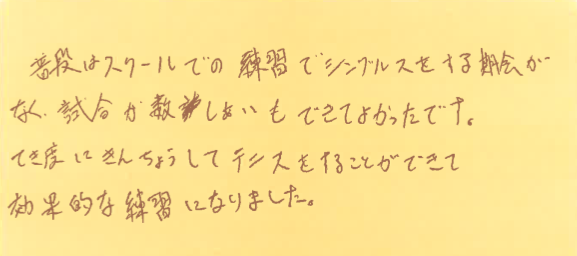 普段はスクールでの練習でシングルスをする期会が
なく、試合が数多しあいもできてよかったです。
てき度にきんちょうしてテニスをすることができて
効果的な練習になりました。